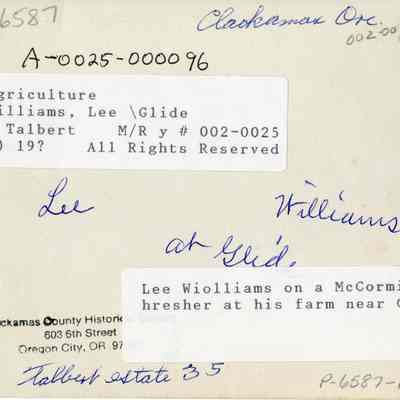 6587
Clackamax Ore.
002-00
A-0025-000096
griculture
illiams, Lee \Glide
Talbert M/R y # 002-0025
) 19? All Rights Reserved
Lee Williams
at Glid.
Lee Wiolliams on a McCormi
hresher at his farm near
ckamas County Historic
603 6th Street
Oregon City, OR 97
Talbert estate 35
P-6587-